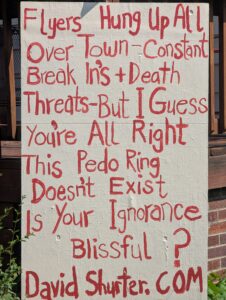 Flyers Hung Up All
Over Town-Constant
Break In's + Death
Threats-But I Guess
You're All Right
This Pedo Ring
Doesn't Exist
Is Your Ignorance
Blissful ?
David Shurter. COM